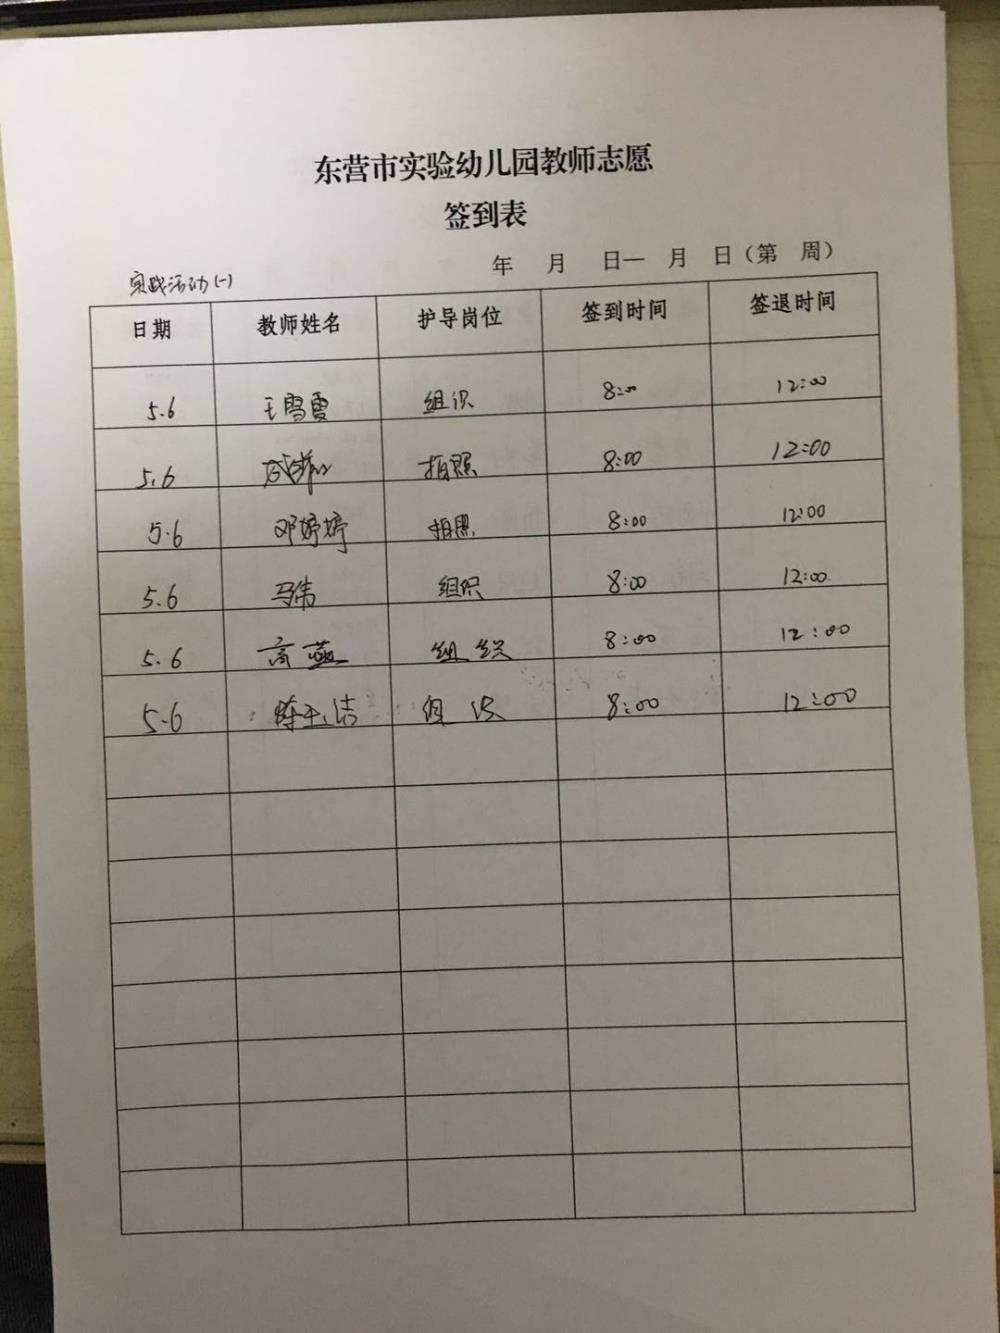 东营市实验幼儿园教师志愿
签到表
年 月 日— 月 日（第 周）
实践活动(一)
日期 教师姓名 护导岗位 签到时间 签退时间
5.6 王雪霞 组织 8:00 12:00
5.6 拍照 8:00 12:00
5.6 邓婷婷 拍照 8:00 12:00
5.6 马伟 组织 8:00 12:00.
5.6 高燕 组织 8:00 12:00
5.6 陈玉洁 组织 8:00 12:00